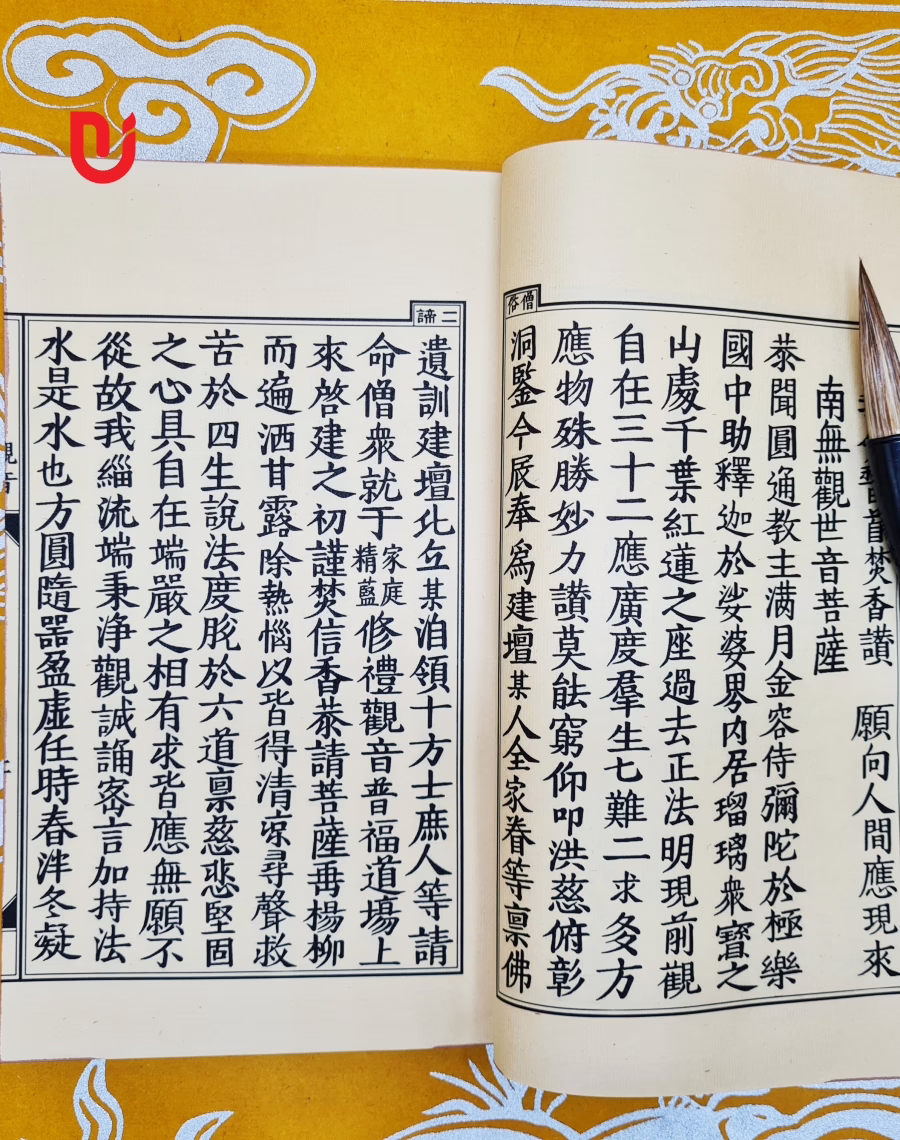 首焚香讃 願向人間應現來
南無觀世音菩薩
恭聞圓通教主满月金容侍彌陀於極樂
國中助釋迦於娑婆界内居瑠璃衆寶之
山處千葉紅蓮之座過去正法明現前觀
自在三十二應廣度羣生七難二求多方
應物殊勝妙力讃莫能窮仰叩洪慈俯彰
僧俗
洞鑒今辰奉 爲建壇某人全家眷等禀佛
二諦
遺訓建壇比丘某洎領十方士庶人等請
命僧衆就于家庭精藍修禮觀音普福道塲上
來啓建之初謹焚信香恭請菩薩再楊柳
而遍洒甘露除熱惱以皆得清凉尋聲救
苦於四生說法度脫於六道禀慈悲堅固
之心具自在端嚴之相有求皆應無願不
從故我緇流端秉浄觀誠誦密言加持法
水是水也方圓隨器盈虛任時春泮冬凝